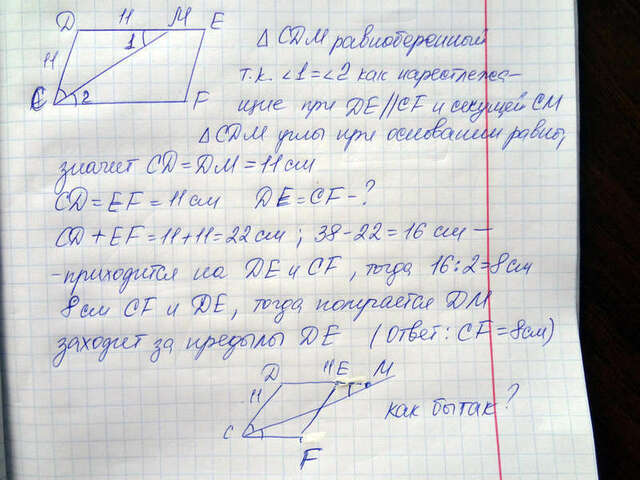 D 11 M E
11 1
C 2 F
Δ CDM равнобедренный
т.к. <1=<2 как накрестлежа-
щие при DE//CF и секущей CM
Δ CDM углы при основании равны,
значит CD=DM=11см
CD=EF=11см DE=CF-?
CD+EF=11+11=22см; 38-22=16 см —
-приходится на DE и CF, тогда 16:2=8см
8см CF и DE, тогда получается DM
заходит за предылы DE (Ответ: CF=8см)
D 11 E M
11
C F
как бы так?